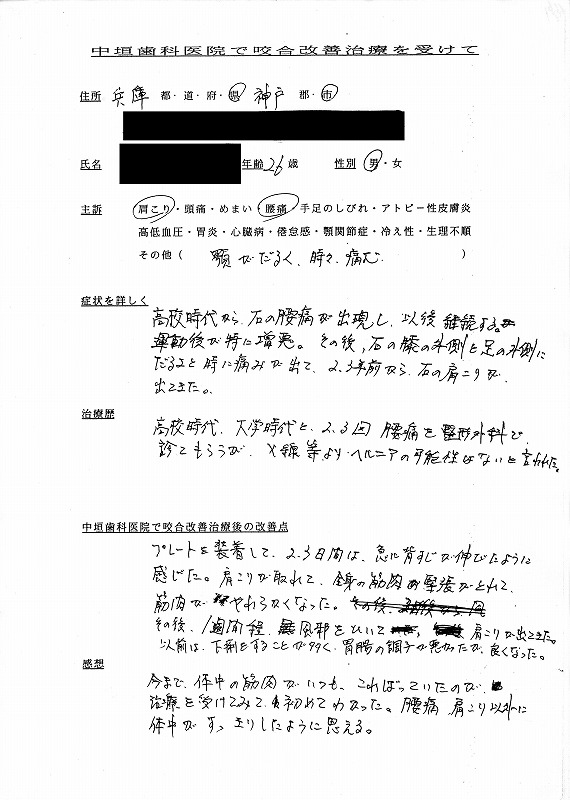 中垣歯科医院で咬合改善治療を受けて
住所 兵庫 都・道・府・県 神戸 郡・市
氏名 年齢 26 歳 性別 男・女
主訴 肩こり・頭痛・めまい・腰痛・手足のしびれ・アトピー性皮膚炎
高低血圧・胃炎・心臓病・倦怠感・顎関節症・冷え性・生理不順
その他( 顎がだるく、時々、痛む )
症状を詳しく
高校時代から、右の腰痛が出現し、以後継続する。
運動後が特に増悪。その後、右の膝の外側と足の外側に
だるさと時に痛みが出て、2、3年前から、右の肩こりが
出てきた。
治療歴
高校時代、大学時代と、2、3回 腰痛を整形外科で
診てもらうが、X線等より、ヘルニアの可能性はないと言われた。
中垣歯科医院で咬合改善治療後の改善点
プレートを装着して、2、3日間は、急に背すじが伸びたように
感じた。肩こりが取れて、全身の筋肉の緊張がとれて、
筋肉がやわらかくなった。
その後、1週間程、風邪をひいて、肩こりが出てきた。
以前は、下痢をすることが多く、胃腸の調子が悪かったが、良くなった。
感想
今まで、体中の筋肉がいつも、こわばっていたのが、
治療を受けてみて、初めてわかった。腰痛、肩こり以外に
体中がすっきりしたように思える。